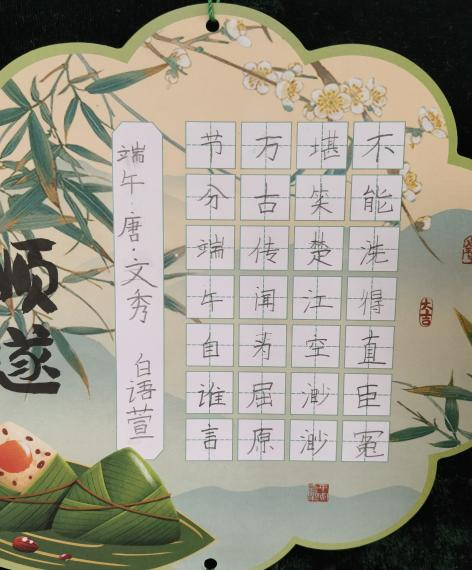 顺遂
端午·唐·文秀 白语萱
节分端午自谁言
万古传闻为屈原
堪笑楚江空渺渺
不能洗得直臣冤
大吉